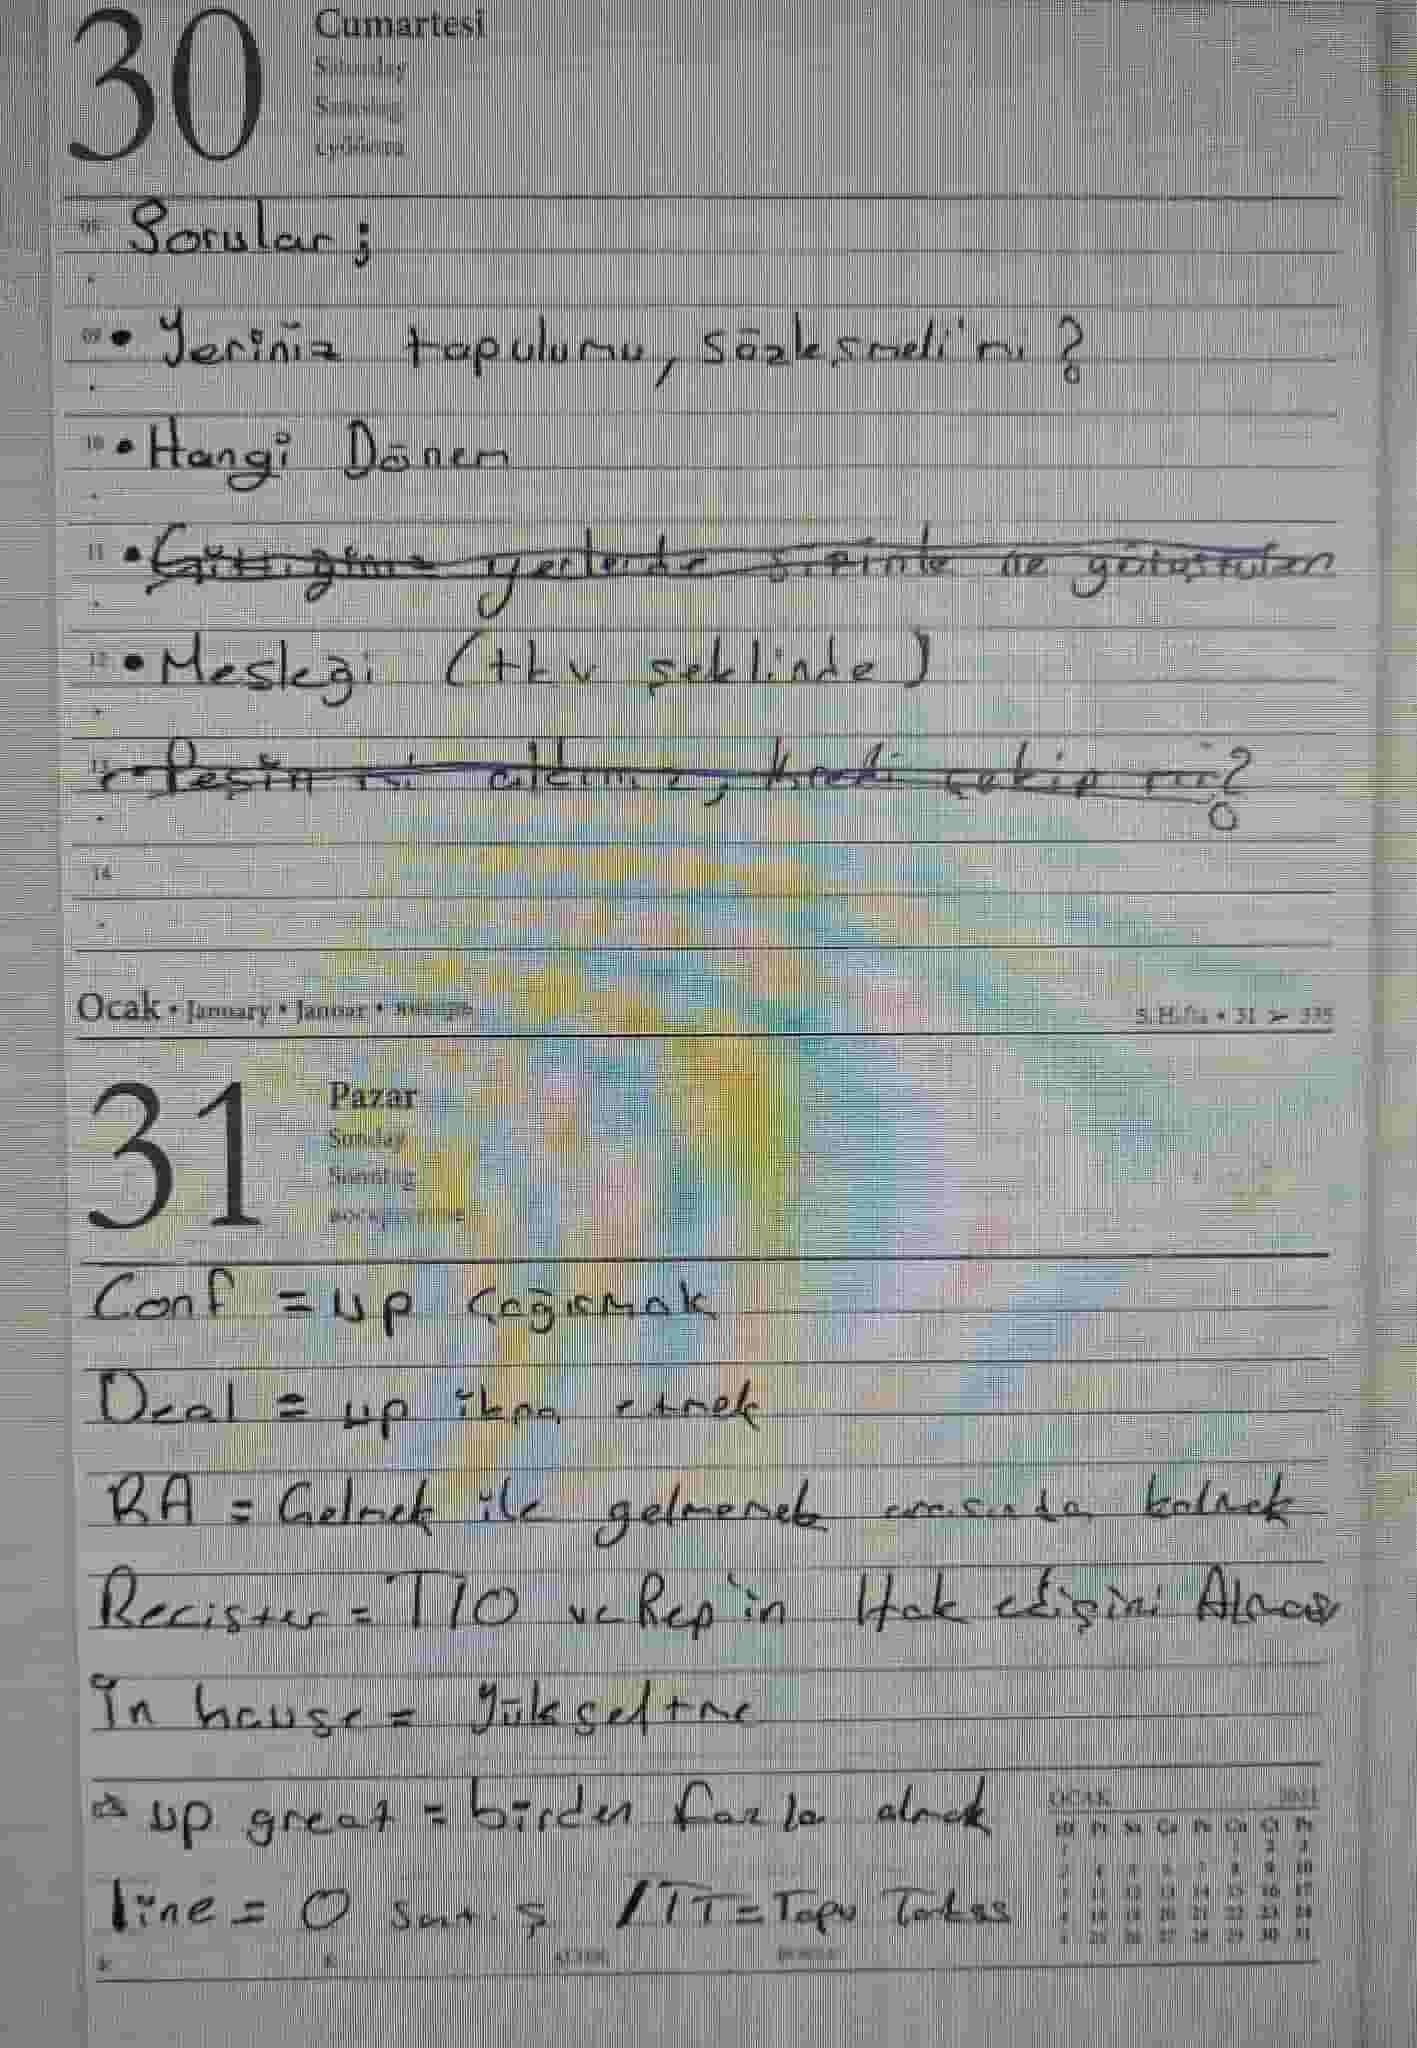 30 Cumartesi
Saturday
Samstag
суббота
08 Sorular ;
09 • Yeriniz tapulumu, sözleşmeli'mi ?
10 • Hangi Dönem
11 • Gittiğiniz yerlerde sizinle ne görüştüler
12 • Mesleği (tkv şeklinde)
13 • Peşin mi aldınız, kredi çekip mi?
14
Ocak • January • Januar • январь 5. Hafta • 31 > 335
31 Pazar
Sunday
Sonntag
воскресенье
Conf = up çağırmak
Deal = up ikna etmek
RA = Gelmek ile gelmemek arasında kalmak
Recister = T/O ve Rep'in Hak edişini Alması
İn house = Yükseltme
up great = birden fazla almak
line = 0 satış / TT = Tapu Takas
OCAK 2021
Pt Sa Ça Pe Cu Ct Pz
1 1 2 3
2 4 5 6 7 8 9 10
3 11 12 13 14 15 16 17
4 18 19 20 21 22 23 24
5 25 26 27 28 29 30 31